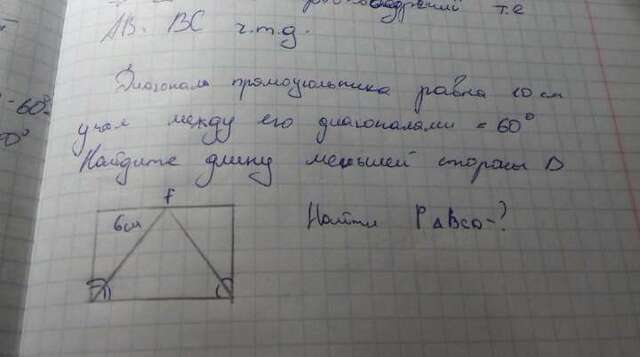 т.е
AB = BC ч.т.д.
Диагональ прямоугольника равна 10 см
-60°
угол между его диагоналями = 60°
0°
Найдите длину меньшей стороны D
F
6см
Найти P ABCD-?